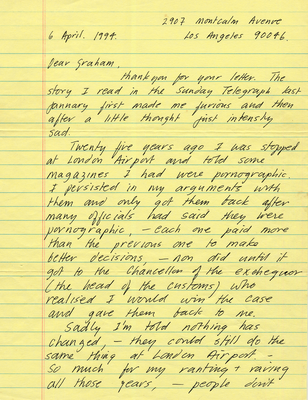 2907 Montcalm Avenue
6 April. 1994. Los Angeles 90046.
Dear Graham,
Thank you for your letter. The
story I read in the Sunday Telegraph last
January first made me furious and then
after a little thought just intensly
sad.
Twenty five years ago I was stopped
at London Airport and told some
magazines I had were pornographic.
I persisted in my arguments with
them and only got them back after
many officials had said they were
pornographic, – each one paid more
than the previous one to make
better decisions, – non did until it
got to the Chancellor of the exchequor
(the head of the customs) who
realised I would win the case
and gave them back to me.
Sadly I'm told nothing has
changed, – they could still do the
same thing at London Airport, –
so much for my ranting + raving
all those years, – people don't